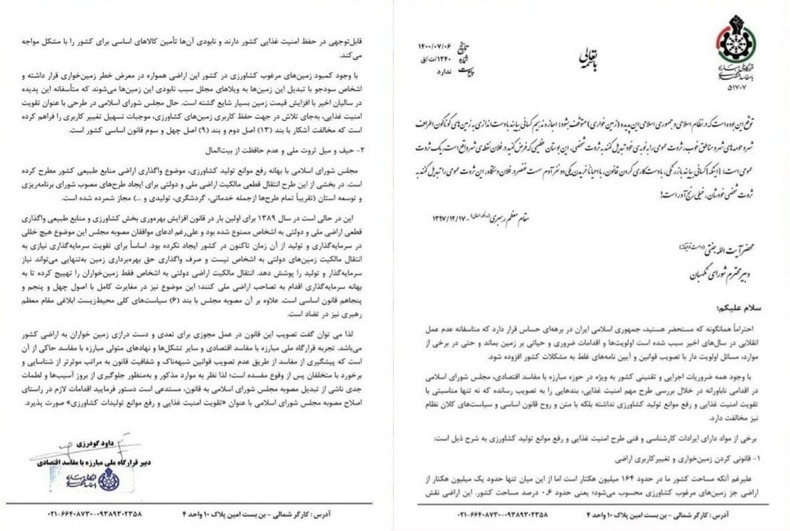 بسمه تعالی
تاریخ ۱۴۰۰/۰۷/۰۶
شماره ۱۲۴۰/ت/ق
پیوست ندارد
۵۱۷۰۷
توقع این بوده است که در نظام اسلامی و جمهوری اسلامی این پدیده (زمین خواری) متوقف بشود؛ اجازه ندهیم کسانی بیایند با دست اندازی به زمین‌های گوناگون اطراف
شهر و حومه‌های شهر و مناطق خوب، ثروت عمومی را به نوبه‌ی خود تبدیل کنند به ثروت شخصی. این بوستان عظیمی که فرض کنید در فلان نقطه‌ی شهر واقع است، یک ثروت
عمومی است؛ اینکه کسانی بیایند با زرنگی، با دست‌کاری کردن قانون، با احیاناً خریدن یکی دو نفر آدم سست عنصر در فلان دستگاه، این ثروت عمومی را تبدیل کنند به
ثروت شخصی خودشان، خیلی رنج آور است!
مقام معظم رهبری - ۱۳۹۷/۱۲/۱۷
محضر آیت الله جنتی
دبیر محترم شورای نگهبان
سلام علیکم؛
احتراماً همانگونه که مستحضر هستید، جمهوری اسلامی ایران در برهه‌ای حساس قرار دارد که متاسفانه عدم عمل
انقلابی در سال‌های اخیر سبب شده است اولویت‌ها و اقدامات ضروری و حیاتی بر زمین بماند و حتی در برخی از
موارد، مسائل اولویت دار با تصویب قوانین و آیین نامه‌های غلط به مشکلات کشور افزوده شود.
با وجود همه ضروریات اجرایی و تقنینی کشور به ویژه در حوزه مبارزه با مفاسد اقتصادی، مجلس شورای اسلامی
در اقدامی ناباورانه در خلال بررسی طرح مهم امنیت غذایی، بندهایی را به تصویب رسانده که نه تنها مناسبتی با
تقویت امنیت غذایی و رفع موانع تولید کشاورزی نداشته بلکه با متن و روح قانون اساسی و سیاست‌های کلان نظام
نیز مخالفت دارد.
برخی از مواد دارای ایرادات کارشناسی و فنی طرح امنیت غذایی و رفع موانع تولید کشاورزی به شرح ذیل است:
۱- قانونی کردن زمین‌خواری و تغییرکاربری اراضی
علیرغم آنکه مساحت کشور ما در حدود ۱۶۴ میلیون هکتار است اما از این میان تنها حدود یک میلیون هکتار از
اراضی جز زمین‌های مرغوب کشاورزی محسوب می‌شود؛ یعنی حدود ۰.۶ درصد مساحت کشور. این اراضی نقش
آدرس : کارگر شمالی - بن بست امین پلاک ۱۰ واحد ۴
۰۲۱-۶۶۴۰۸۷۳۰-۰۹۳۸۹۳۰۲۳۵۸
قابل‌توجهی در حفظ امنیت غذایی کشور دارند و نابودی آن‌ها تأمین کالاهای اساسی برای کشور را با مشکل مواجه
می‌کند.
با وجود کمبود زمین‌های مرغوب کشاورزی در کشور این اراضی همواره در معرض خطر زمین‌خواری قرار داشته و
اشخاص سودجو با تبدیل این زمین‌ها به ویلاهای مجلل سبب نابودی این زمین‌ها می‌شوند که متأسفانه این پدیده
در سالیان اخیر با افزایش قیمت زمین بسیار شایع گشته است. حال مجلس شورای اسلامی در طرحی با عنوان تقویت
امنیت غذایی، به‌جای تلاش در جهت حفظ کاربری زمین‌های کشاورزی، موجبات تسهیل تغییر کاربری را فراهم کرده
است که مخالفت آشکار با بند (۱۳) اصل دوم و بند (۹) اصل چهل و سوم قانون اساسی کشور است.
۲- حیف و میل ثروت ملی و عدم حفاظت از بیت‌المال
مجلس شورای اسلامی با بهانه رفع موانع تولید کشاورزی، موضوع واگذاری اراضی منابع طبیعی کشور مطرح کرده
است. در بخشی از این طرح انتقال قطعی مالکیت اراضی ملی و دولتی برای ایجاد طرح‌های مصوب شورای برنامه‌ریزی
و توسعه استان (تقریباً تمام طرح‌ها ازجمله خدماتی، گردشگری، تولیدی و ...) مجاز شمرده شده است.
این در حالی است در سال ۱۳۸۹ برای اولین بار در قانون افزایش بهره‌وری بخش کشاورزی و منابع طبیعی واگذاری
قطعی اراضی ملی و دولتی به اشخاص ممنوع شده بود و علی‌رغم ادعای موافقان مصوبه مجلس این موضوع هیچ خللی
در سرمایه‌گذاری و تولید از آن زمان تاکنون در کشور ایجاد نکرده بود. اساساً برای تقویت سرمایه‌گذاری نیازی به
انتقال مالکیت زمین‌های دولتی به اشخاص نیست و صرف واگذاری حق بهره‌برداری زمین به‌تنهایی می‌تواند نیاز
سرمایه‌گذار و تولید را پوشش دهد. انتقال مالکیت اراضی دولتی به اشخاص فقط زمین‌خواران را تهییج کرده تا به
بهانه سرمایه‌گذاری اقدام به تصاحب اراضی ملی کنند؛ این موضوع نیز در مغایرت کامل با اصول چهل و پنجم و
پنجاهم قانون اساسی است. علاوه بر آن مصوبه مجلس با بند (۶) سیاست‌های کلی محیط‌زیست ابلاغی مقام معظم
رهبری نیز در تضاد است.
لذا می توان گفت تصویب این قانون در عمل مجوزی برای تعدی و دست درازی زمین خواران به اراضی کشور
می‌باشد. تجربه قرارگاه ملی مبارزه با مفاسد اقتصادی و سایر تشکل‌ها و نهادهای متولی مبارزه با مفاسد حاکی از آن
است که پیشگیری از مفاسد از طریق عدم تصویب قوانین شبهه‌ناک و شفافیت قانون به مراتب موثرتر از شناسایی و
برخورد با متخلفان پس از وقوع مفسده است؛ لذا نظر به موارد مذکور و به‌منظور جلوگیری از بروز آسیب‌ها و لطمات
جدی ناشی از تبدیل مصوبه مجلس شورای اسلامی به قانون، مستدعی است دستور فرمایید اقدامات لازم در راستای
اصلاح مصوبه مجلس شورای اسلامی با عنوان «تقویت امنیت غذایی و رفع موانع تولیدات کشاورزی» صورت پذیرد.
داود گودرزی
دبیر قرارگاه ملی مبارزه با مفاسد اقتصادی
آدرس : کارگر شمالی - بن بست امین پلاک ۱۰ واحد ۴
۰۲۱-۶۶۴۰۸۷۳۰-۰۹۳۸۹۳۰۲۳۵۸